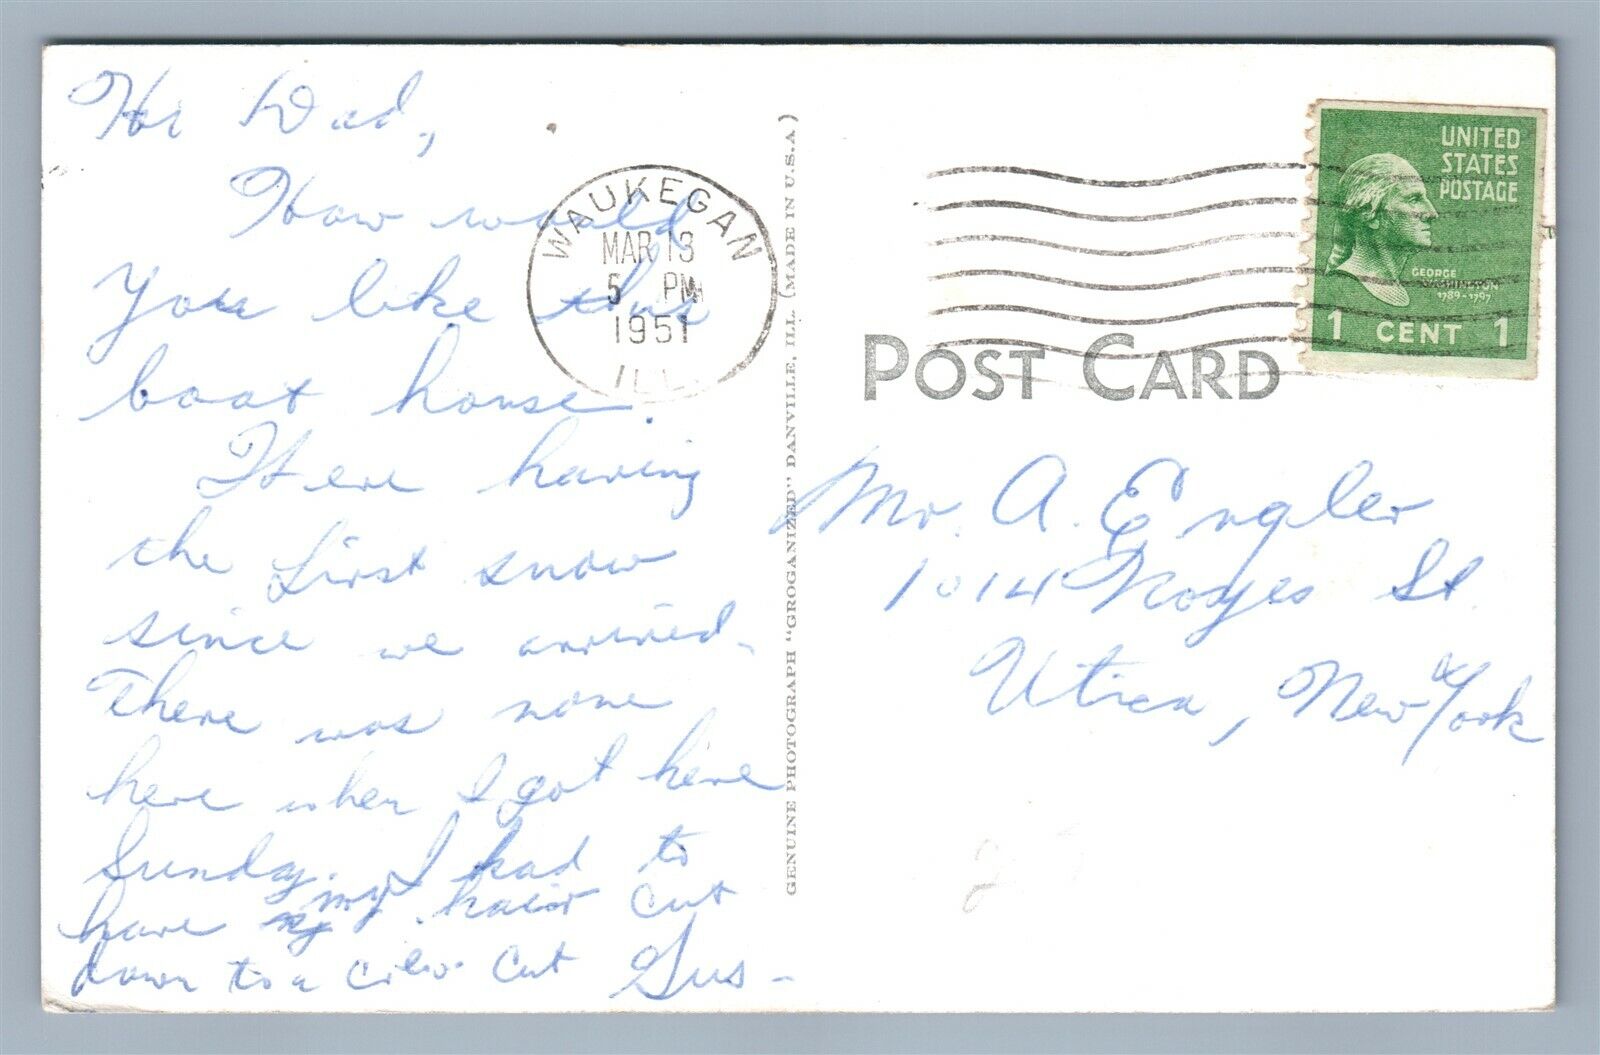 Hi Dad,
How would
you like this
boat house.
Were having
the first snow
since we arrived.
There was none
here when I got here
Sunday. I had to
have my hair cut
down to a crew cut Gus-
WAUKEGAN
MAR 13
5 PM
1951
ILL.
GENUINE PHOTOGRAPH "GROGANIZED" DANVILLE, ILL. (MADE IN U.S.A.)
UNITED
STATES
POSTAGE
GEORGE
WASHINGTON
1789-1797
1 CENT 1
POST CARD
Mr. A. Engler
1014 Noyes St.
Utica, New York